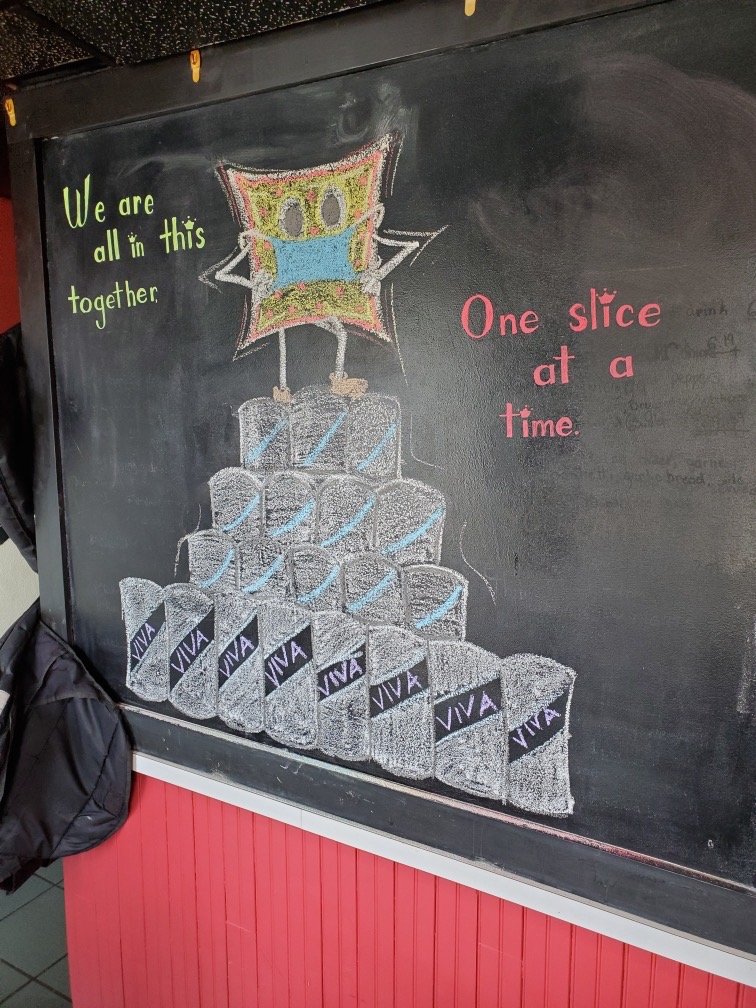 We are
all in this
together.
One slice
at a
time.
VIVA VIVA VIVA VIVA VIVA VIVA VIVA VIVA